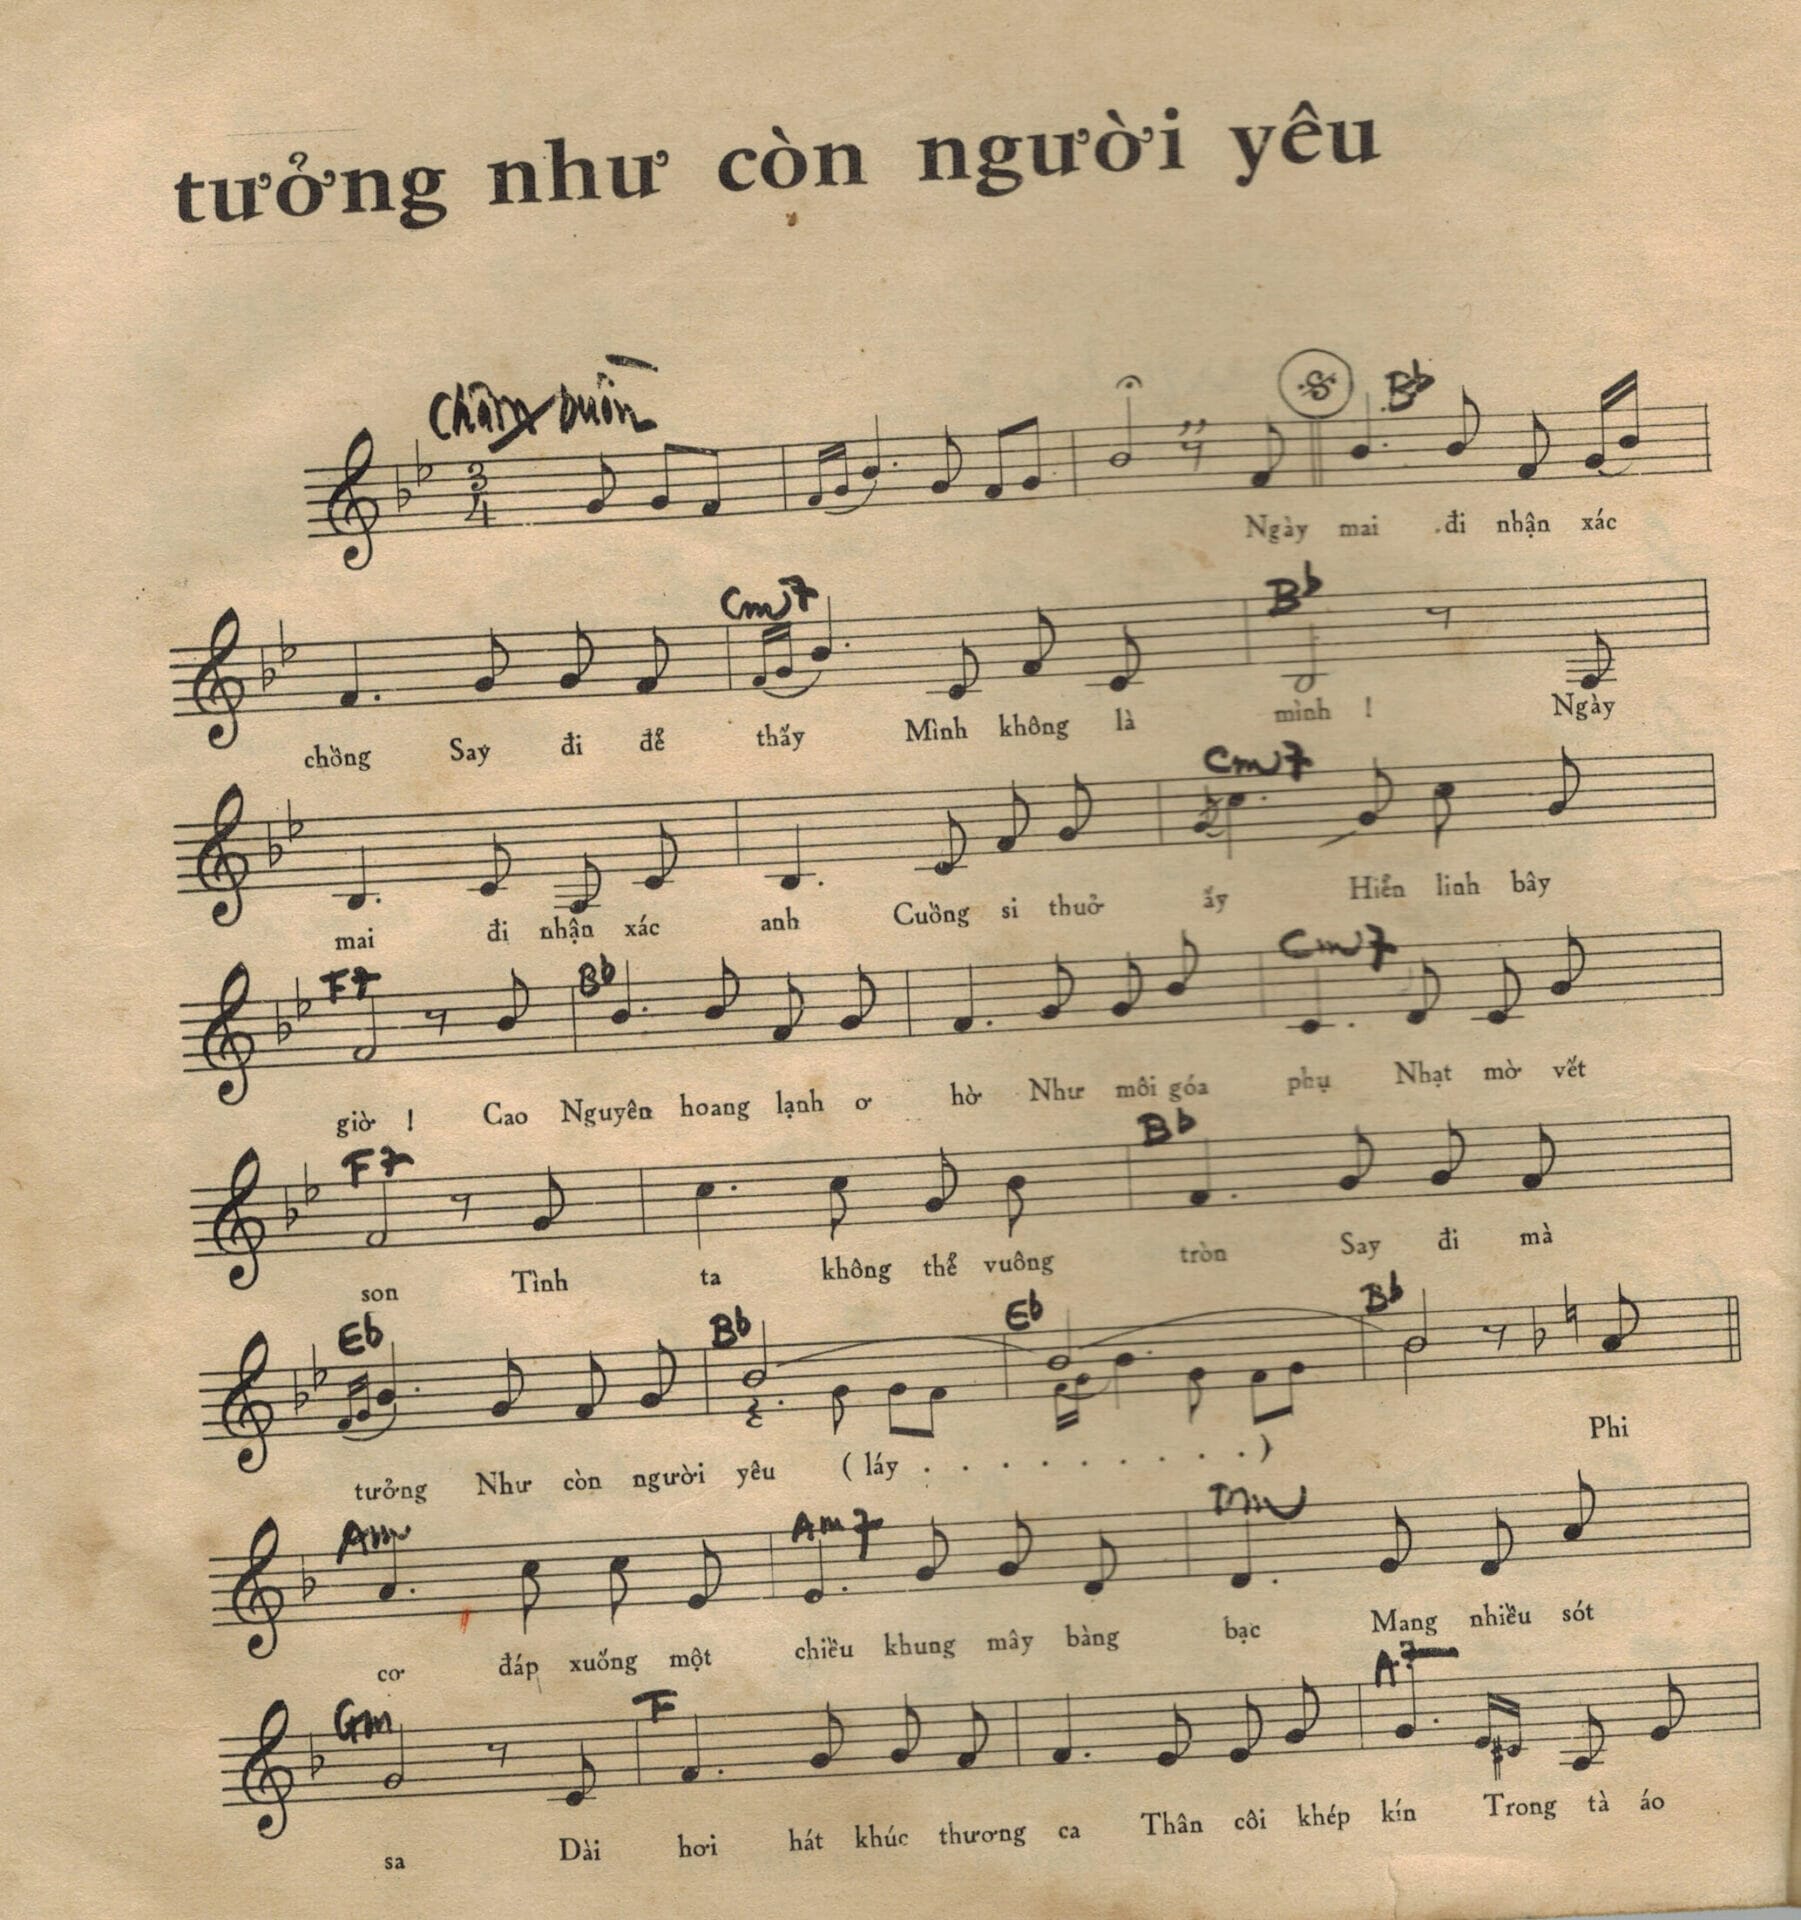 tưởng như còn người yêu
Chậm buồn
3/4
Bb
Ngày mai đi nhận xác
Cm7 Bb
chồng Say đi để thấy Mình không là mình ! Ngày
Cm7
mai đi nhận xác anh Cuồng si thuở ấy Hiển linh bây
F7 Bb Cm7
giờ ! Cao Nguyên hoang lạnh ơ hờ Như môi góa phụ Nhạt mờ vết
F7 Bb
son Tình ta không thể vuông tròn Say đi mà
Eb Bb Eb Bb
tưởng Như còn người yêu ( láy . . . . . . . . . ) Phi
Am Am7 Dm
cơ đáp xuống một chiều khung mây bàng bạc Mang nhiều sót
Gm F A7
sa Dài hơi hát khúc thương ca Thân côi khép kín Trong tà áo